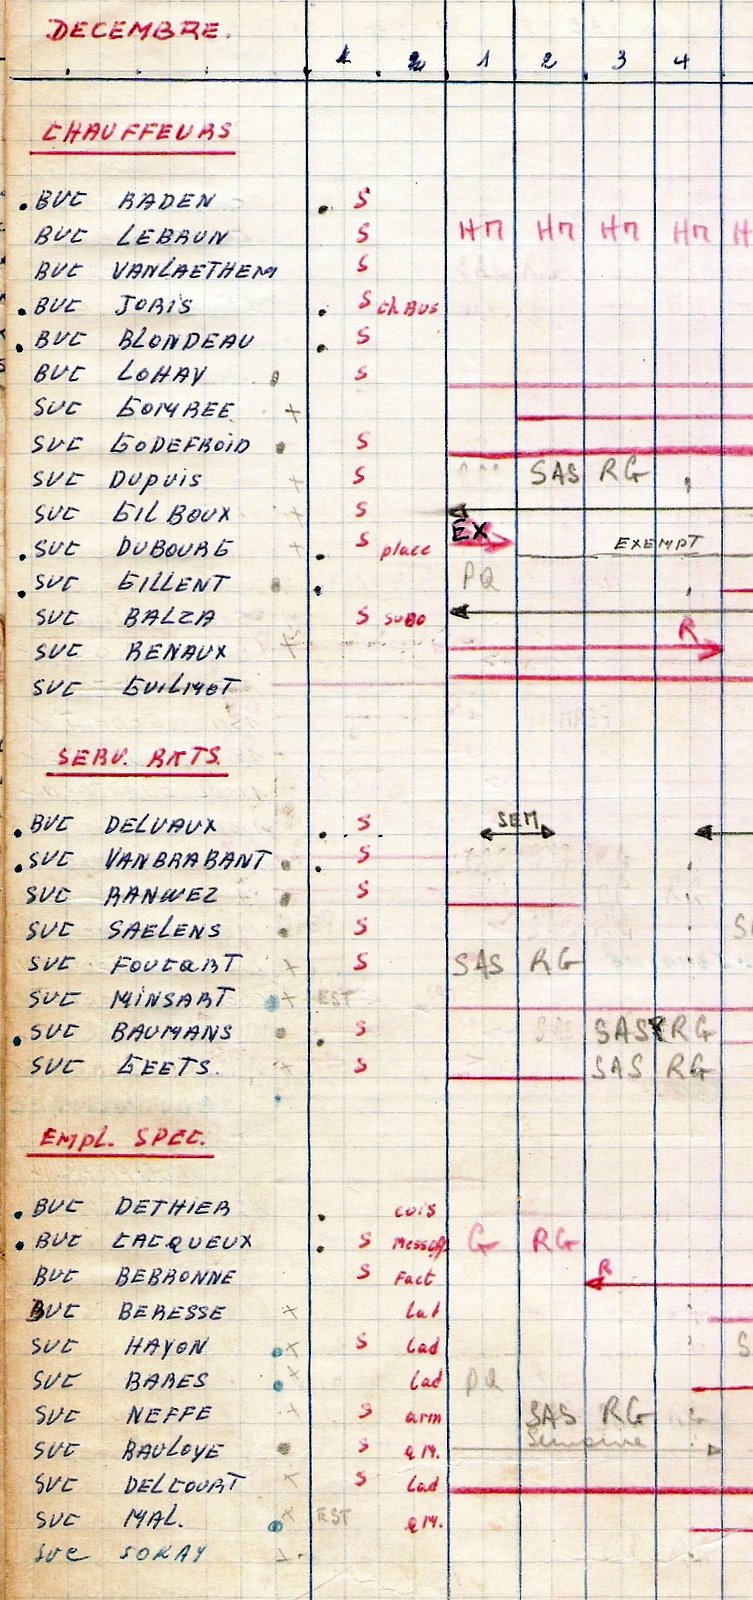 DECEMBRE.
1 2 1 2 3 4
CHAUFFEURS
BUC RADEN S
BUC LEBRUN S HM HM HM HM H
BUC VANLAETHEM S
BUC JORIS S ch BUS
BUC BLONDEAU S
BUC LOHAY S
SUC GOMREE
SUC GODEFROID S
SUC DUPUIS S SAS RG
SUC GILBOUX S
SUC DUBOURG S place EX EXEMPT
SUC GILLENT PQ
SUC BALZA S SUBO
SUC RENAUX R
SUC GUILMOT
SERV. RKTS.
BUC DELVAUX S SEM
SUC VANBRABANT S
SUC RANWEZ S
SUC SAELENS S S
SUC FOUCART S SAS RG
SUC MINSART EST
SUC BAUMANS S SAS RG
SUC GEETS. S SAS RG
EMPL. SPEC.
BUC DETHIER cuis
BUC CACQUEUX S Mess G RG
BUC BEBRONNE S Fact R
BUC BERESSE Lad
SUC HAYON S Lad S
SUC BARES Lad PQ
SUC NEFFE S arm SAS RG
SUC BAULOYE S QM. Semaine
SUC DELCOURT S Lad
SUC MAL. EST QM.
SUC SORAY